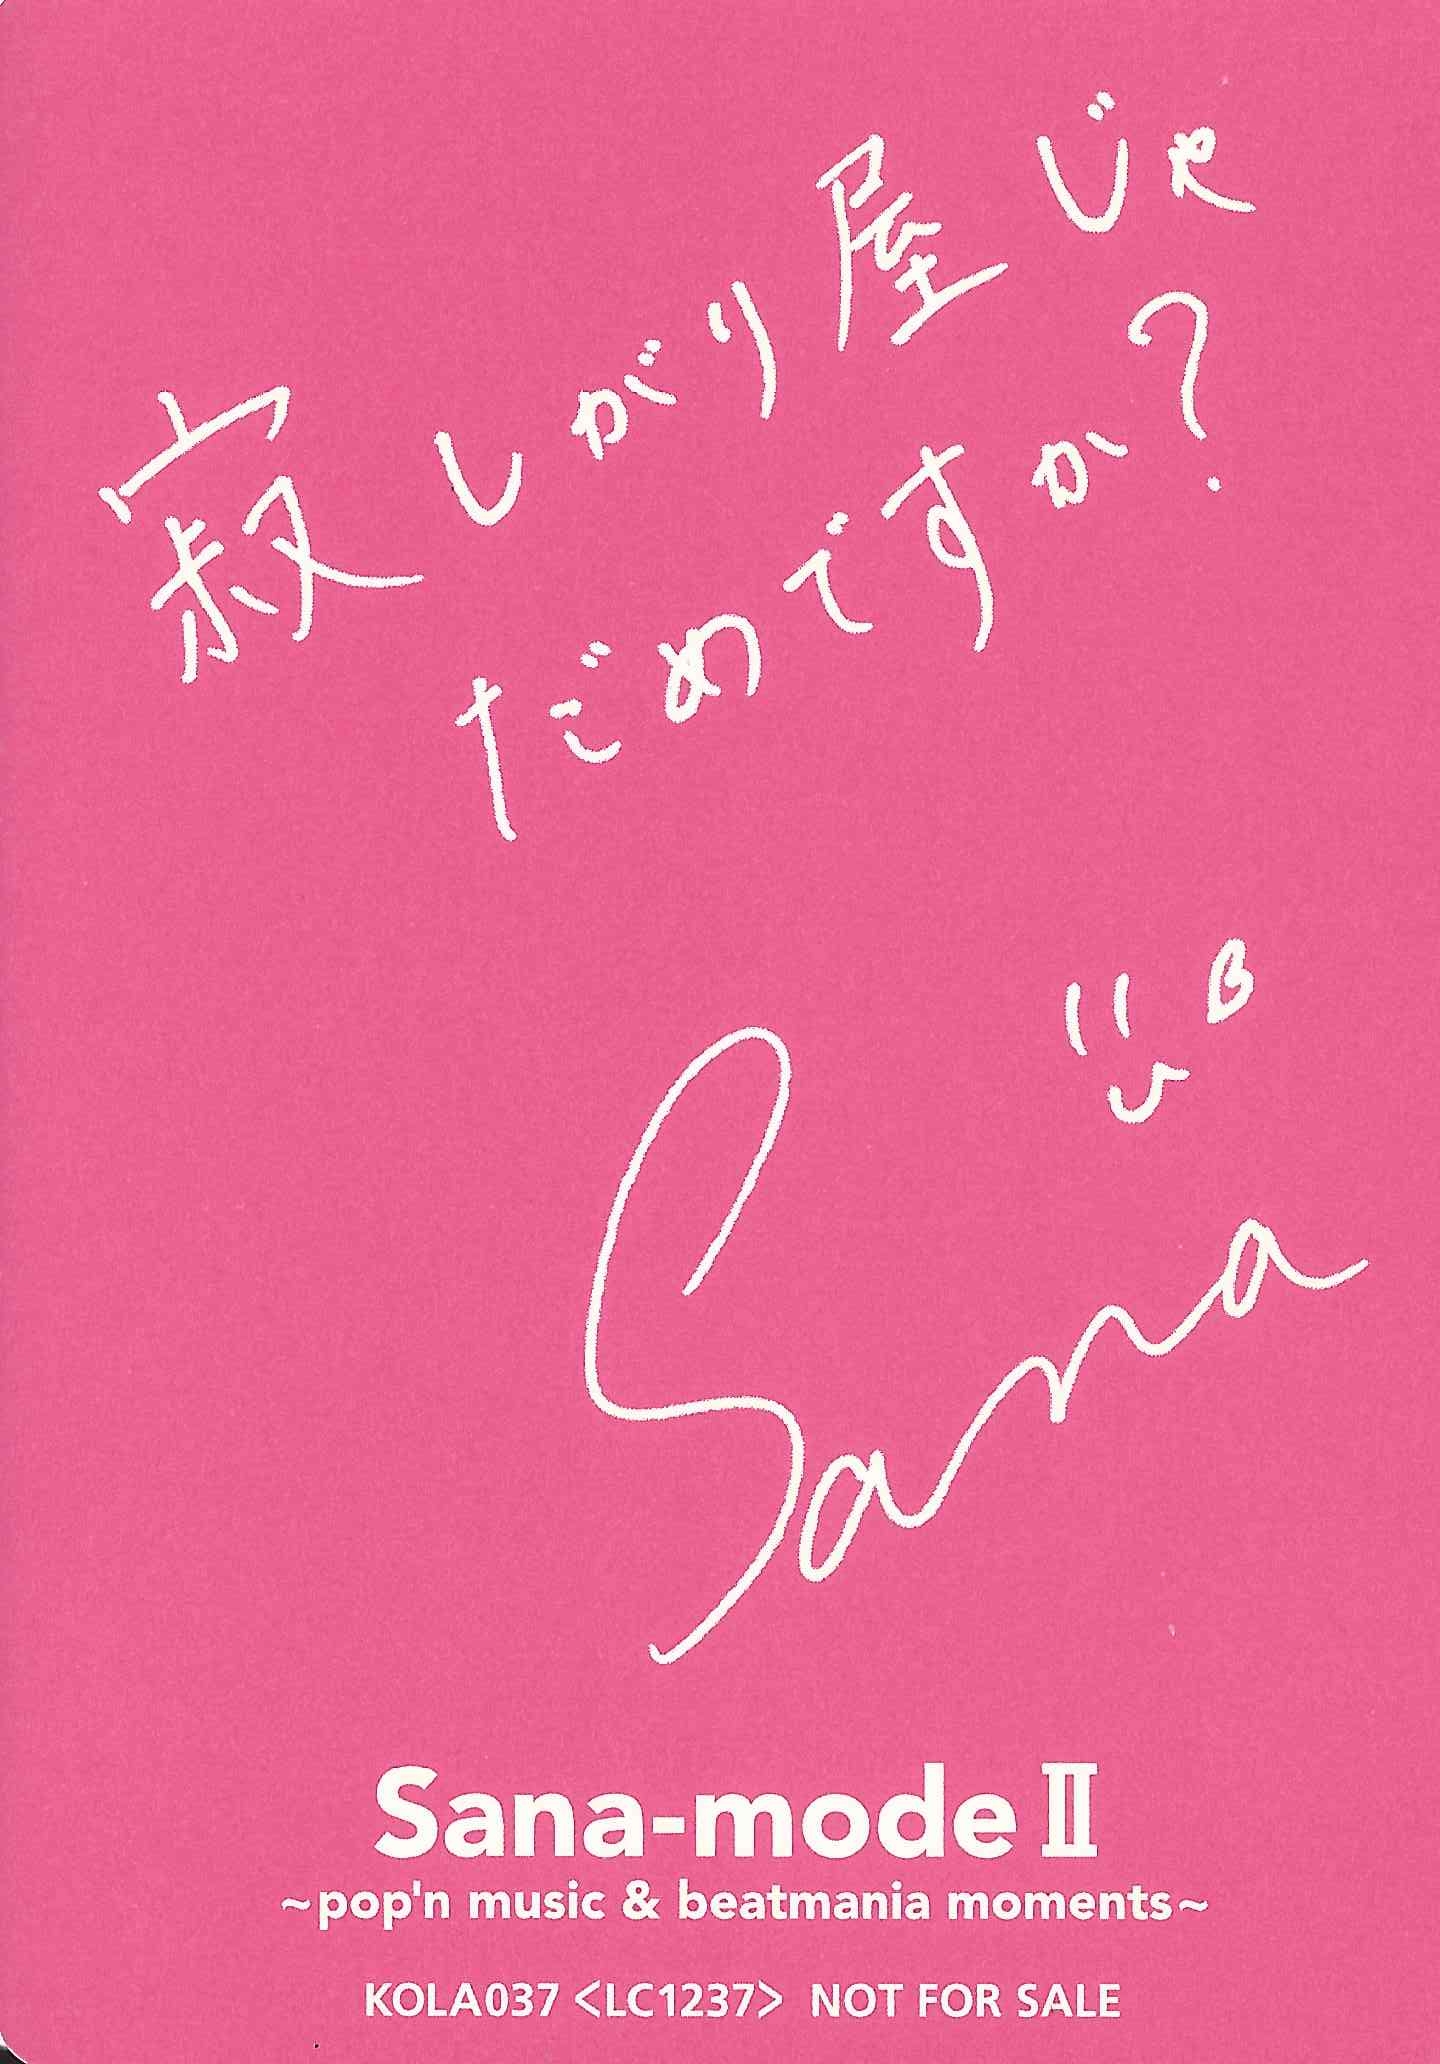 寂しがり屋じゃ
だめですか?
Sana
Sana-mode II
~pop'n music & beatmania moments~
KOLA037 <LC1237> NOT FOR SALE